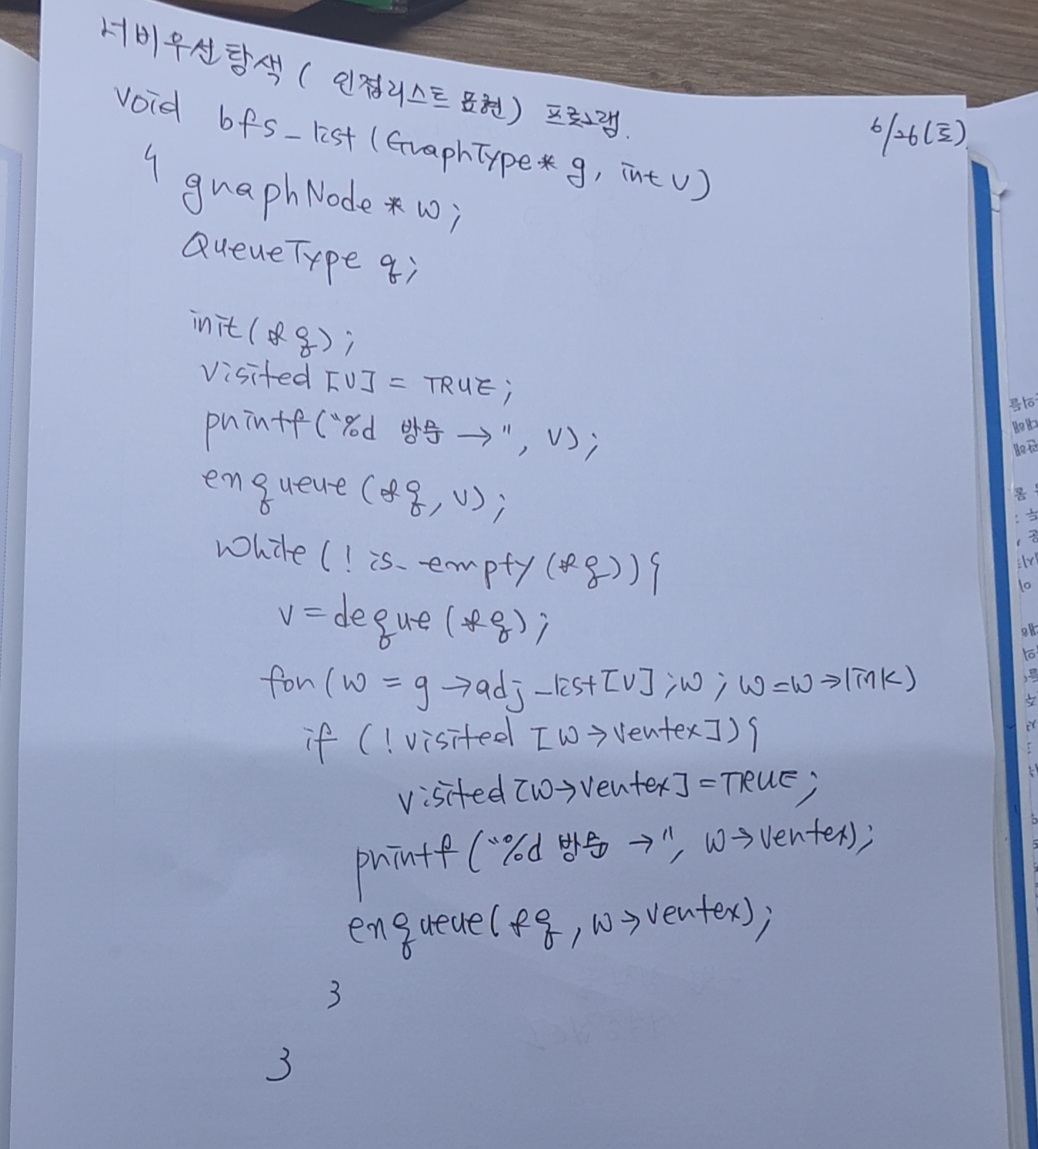 너비우선탐색 ( 인접리스트 표현) 프로그램.
6/26(토)
void bfs_list (GraphType* g, int v)
{ graphNode * w;
QueueType q;
init(&q);
visited [v] = TRUE;
printf("%d 방문 →", v);
enqueue (&q, v);
while (! is_empty(&q)){
v = deque (&q);
for (w = g →adj_list[v] ; w ; w=w→link)
if (! visited [w→vertex]){
visited [w→vertex] = TRUE;
printf ("%d 방문 →", w→vertex);
enqueue(&q, w→vertex);
}
}